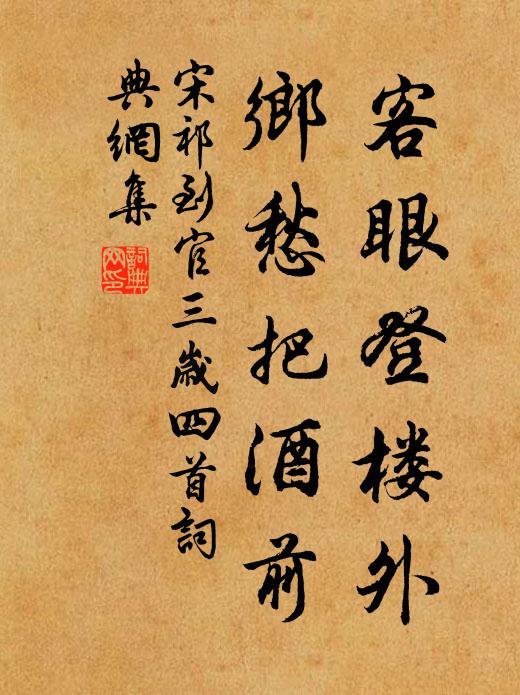 客眼登楼外
鄉愁把酒前
宋祁到官三歲四首詞
典網集
詞典網印